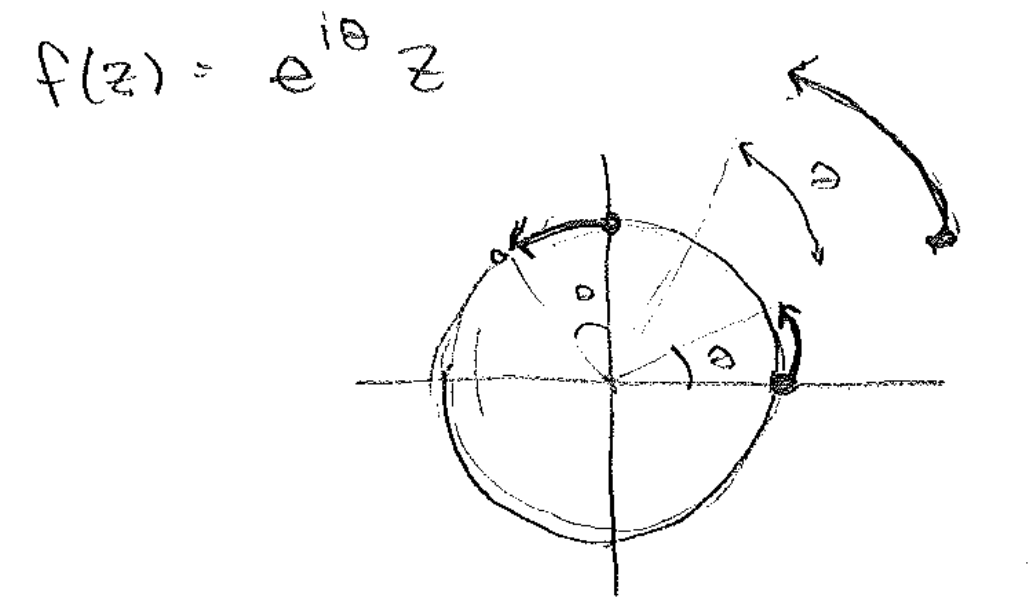 f(z) = e^{iθ} z
θ
θ
θ